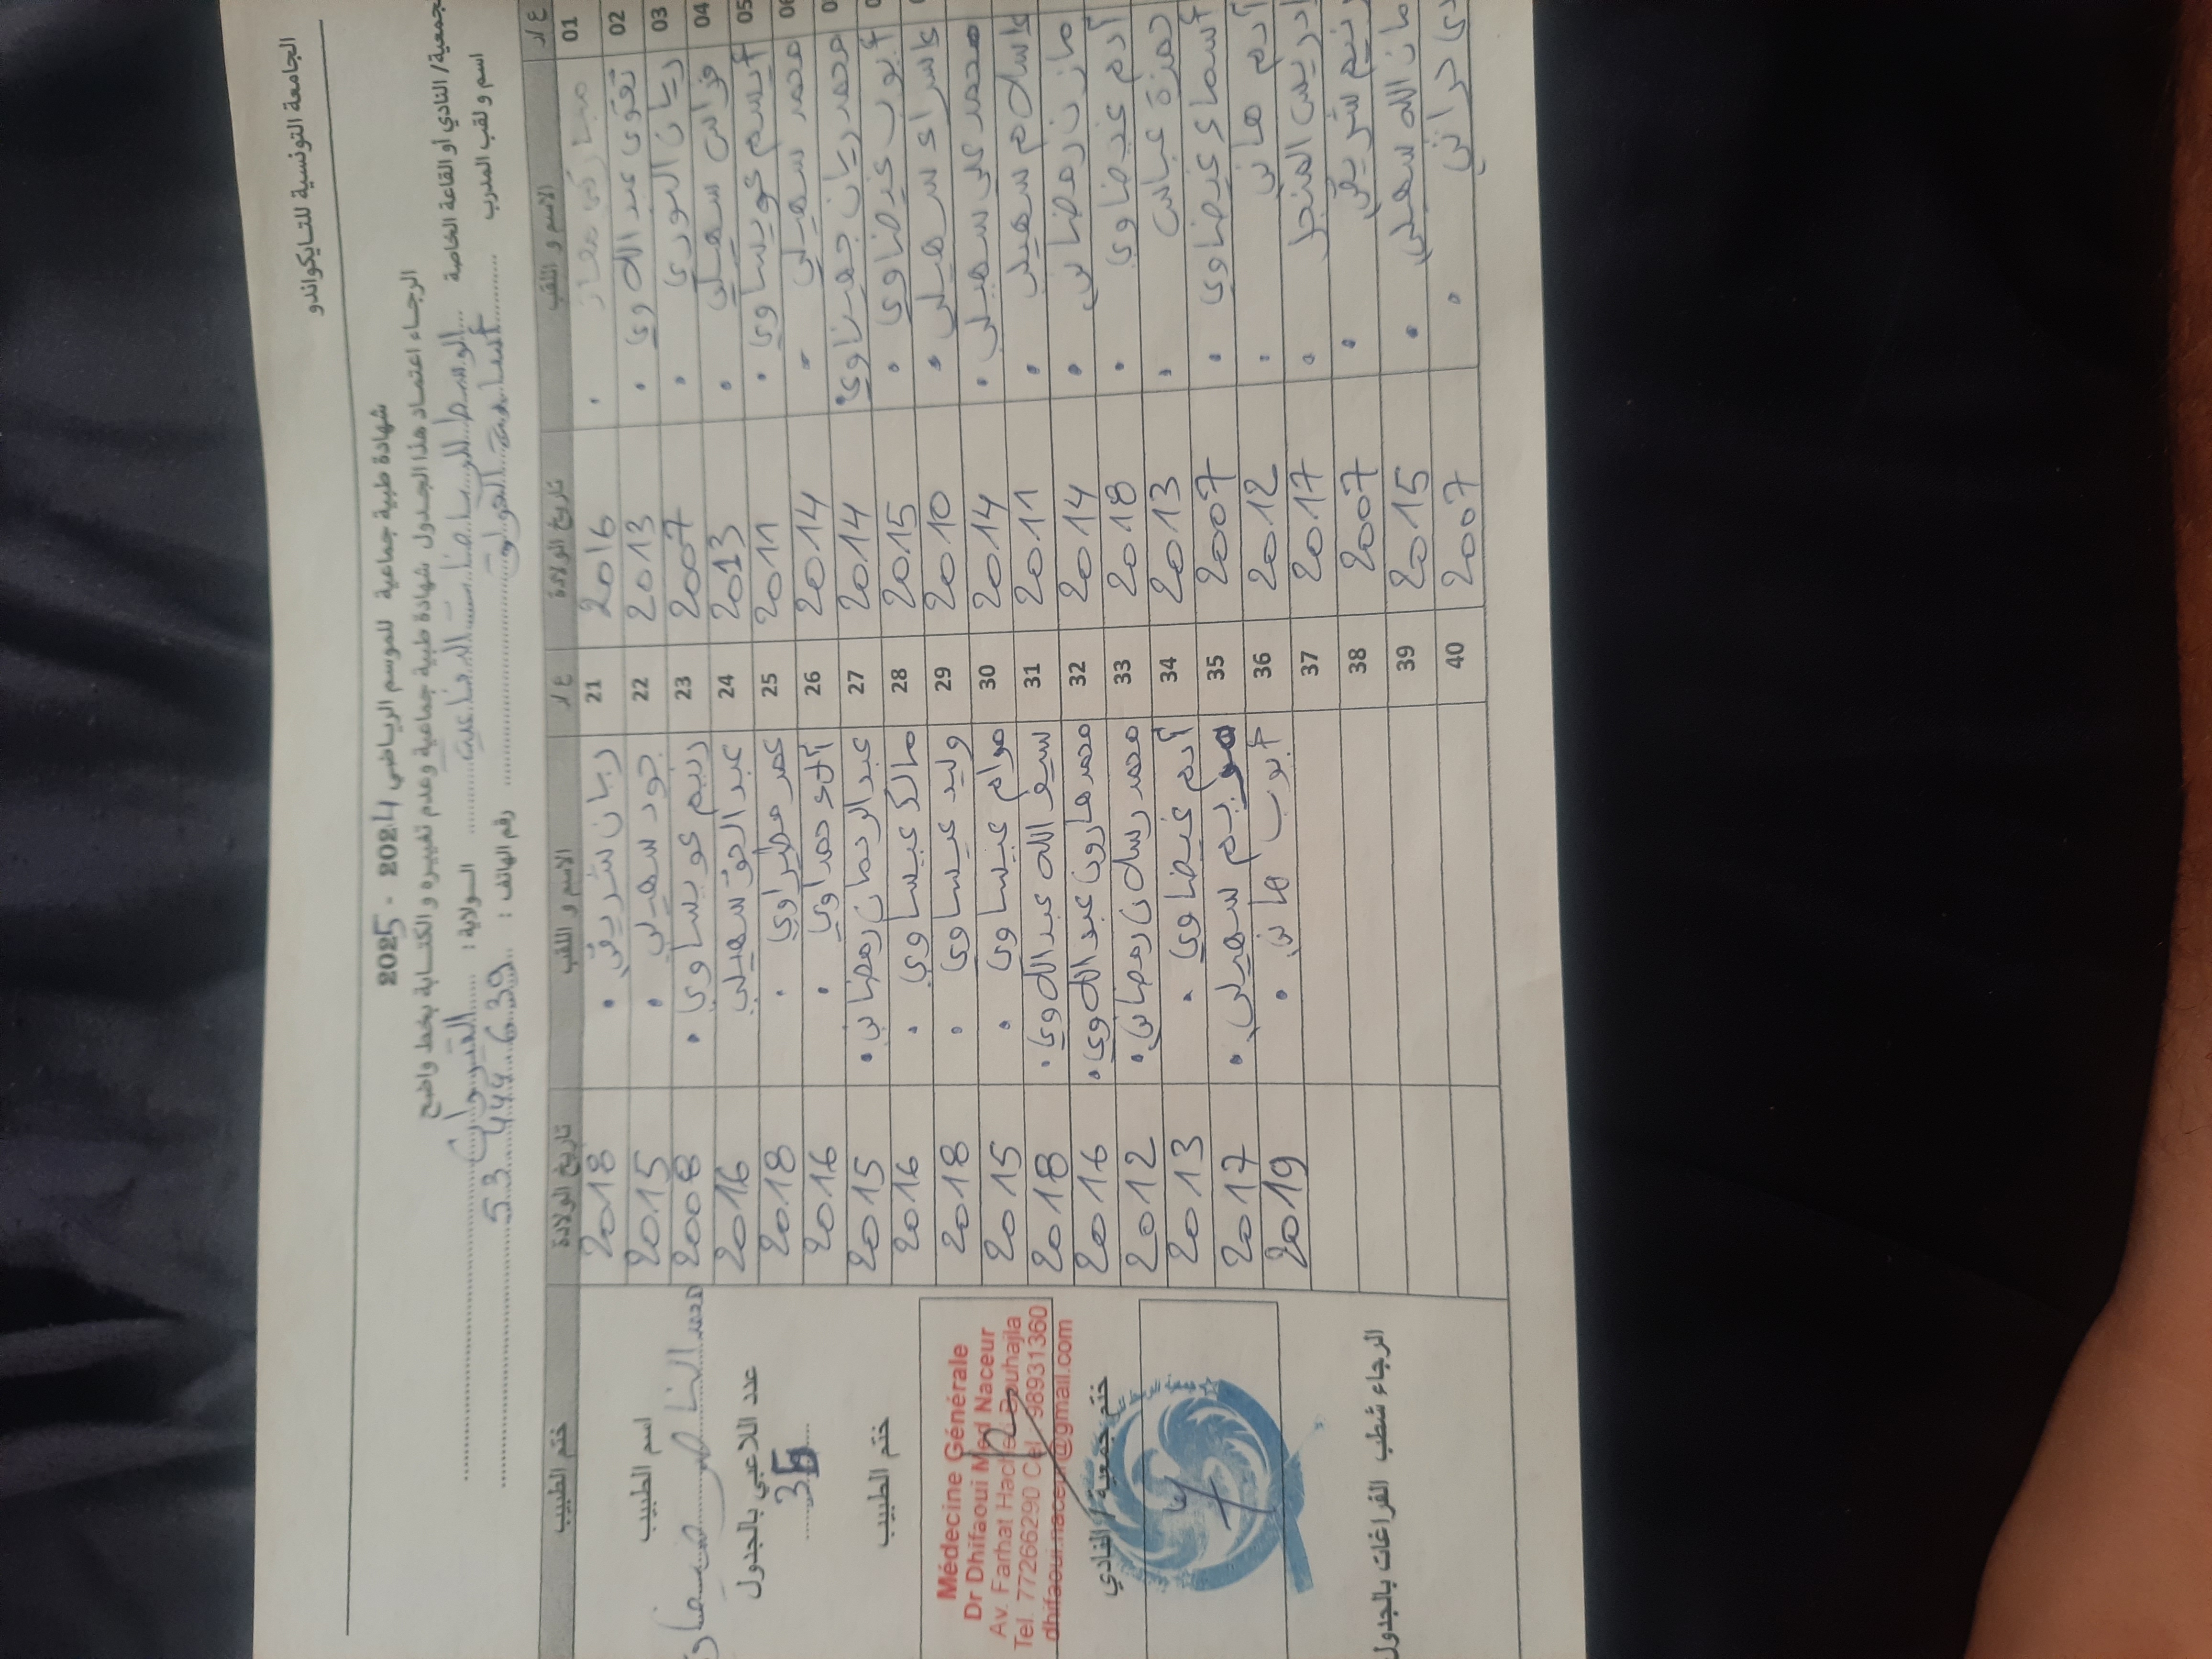 الجامعة التونسية للتايكواندو
شهادة طبية جماعية للموسم الرياضي 2024 - 2025
الرجاء اعتماد هذا الجدول شهادة طبية جماعية وعدم تغييره و الكتابة بخط واضح
جمعية/ النادي أو القاعة الخاصة الولاية : القيروان
اسم و لقب المدرب أسامة رقم الهاتف : 53 444 639
ع/د الاسم و اللقب تاريخ الولادة ع/د الاسم و اللقب تاريخ الولادة ختم الطبيب
01 2016 21 ريان شريفي 2018
02 تقوى عبد اللاوي 2013 22 جود سهيلي 2015
03 ريان النوري 2007 23 رنيم عويساوي 2008
04 فراس سهيلي 2013 24 عبد الحق سهيلي 2016
05 أيسم عويساوي 2011 25 عمر مطيراوي 2018
محمد سهيلي 2014 26 آلاء حمداوي 2016
محمد ريان جهيناوي 2014 27 عبد الرحمان رمضاني 2015
أيوب غيضاوي 2015 28 مالك عيساوي 2016
إسراء سهيلي 2010 29 وليد عيساوي 2018
محمد علي سهيلي 2014 30 مرام عيساوي 2015
إسلام سهيلي 2011 31 سيف الله عبد اللاوي 2018
مازن رمضاني 2014 32 محمد هارون عبد اللاوي 2016
آدم غيضاوي 2018 33 محمد رسلان رمضاني 2012
حمزة عباس 2013 34 آدم غيضاوي 2013
أسماء غيضاوي 2007 35 مريم سهيلي 2017
آدم هاني 2012 36 أيوب هاني 2019
إدريس المنجل 2017 37
رنيم شريفي 2007 38
مان الله سهيلي 2015 39
2007 40
اسم الطبيب
محمد الناصر ضيفاوي
عدد اللاعبي بالجدول
36
ختم الطبيب
Médecine Générale
Dr Dhifaoui Med Naceur
Av. Farhat Hached Bouhajla
Tel. 77266290 Cel. 98931360
dhifaoui.naceur@gmail.com
ختم جمعية / النادي
الرجاء شطب الفراغات بالجدول